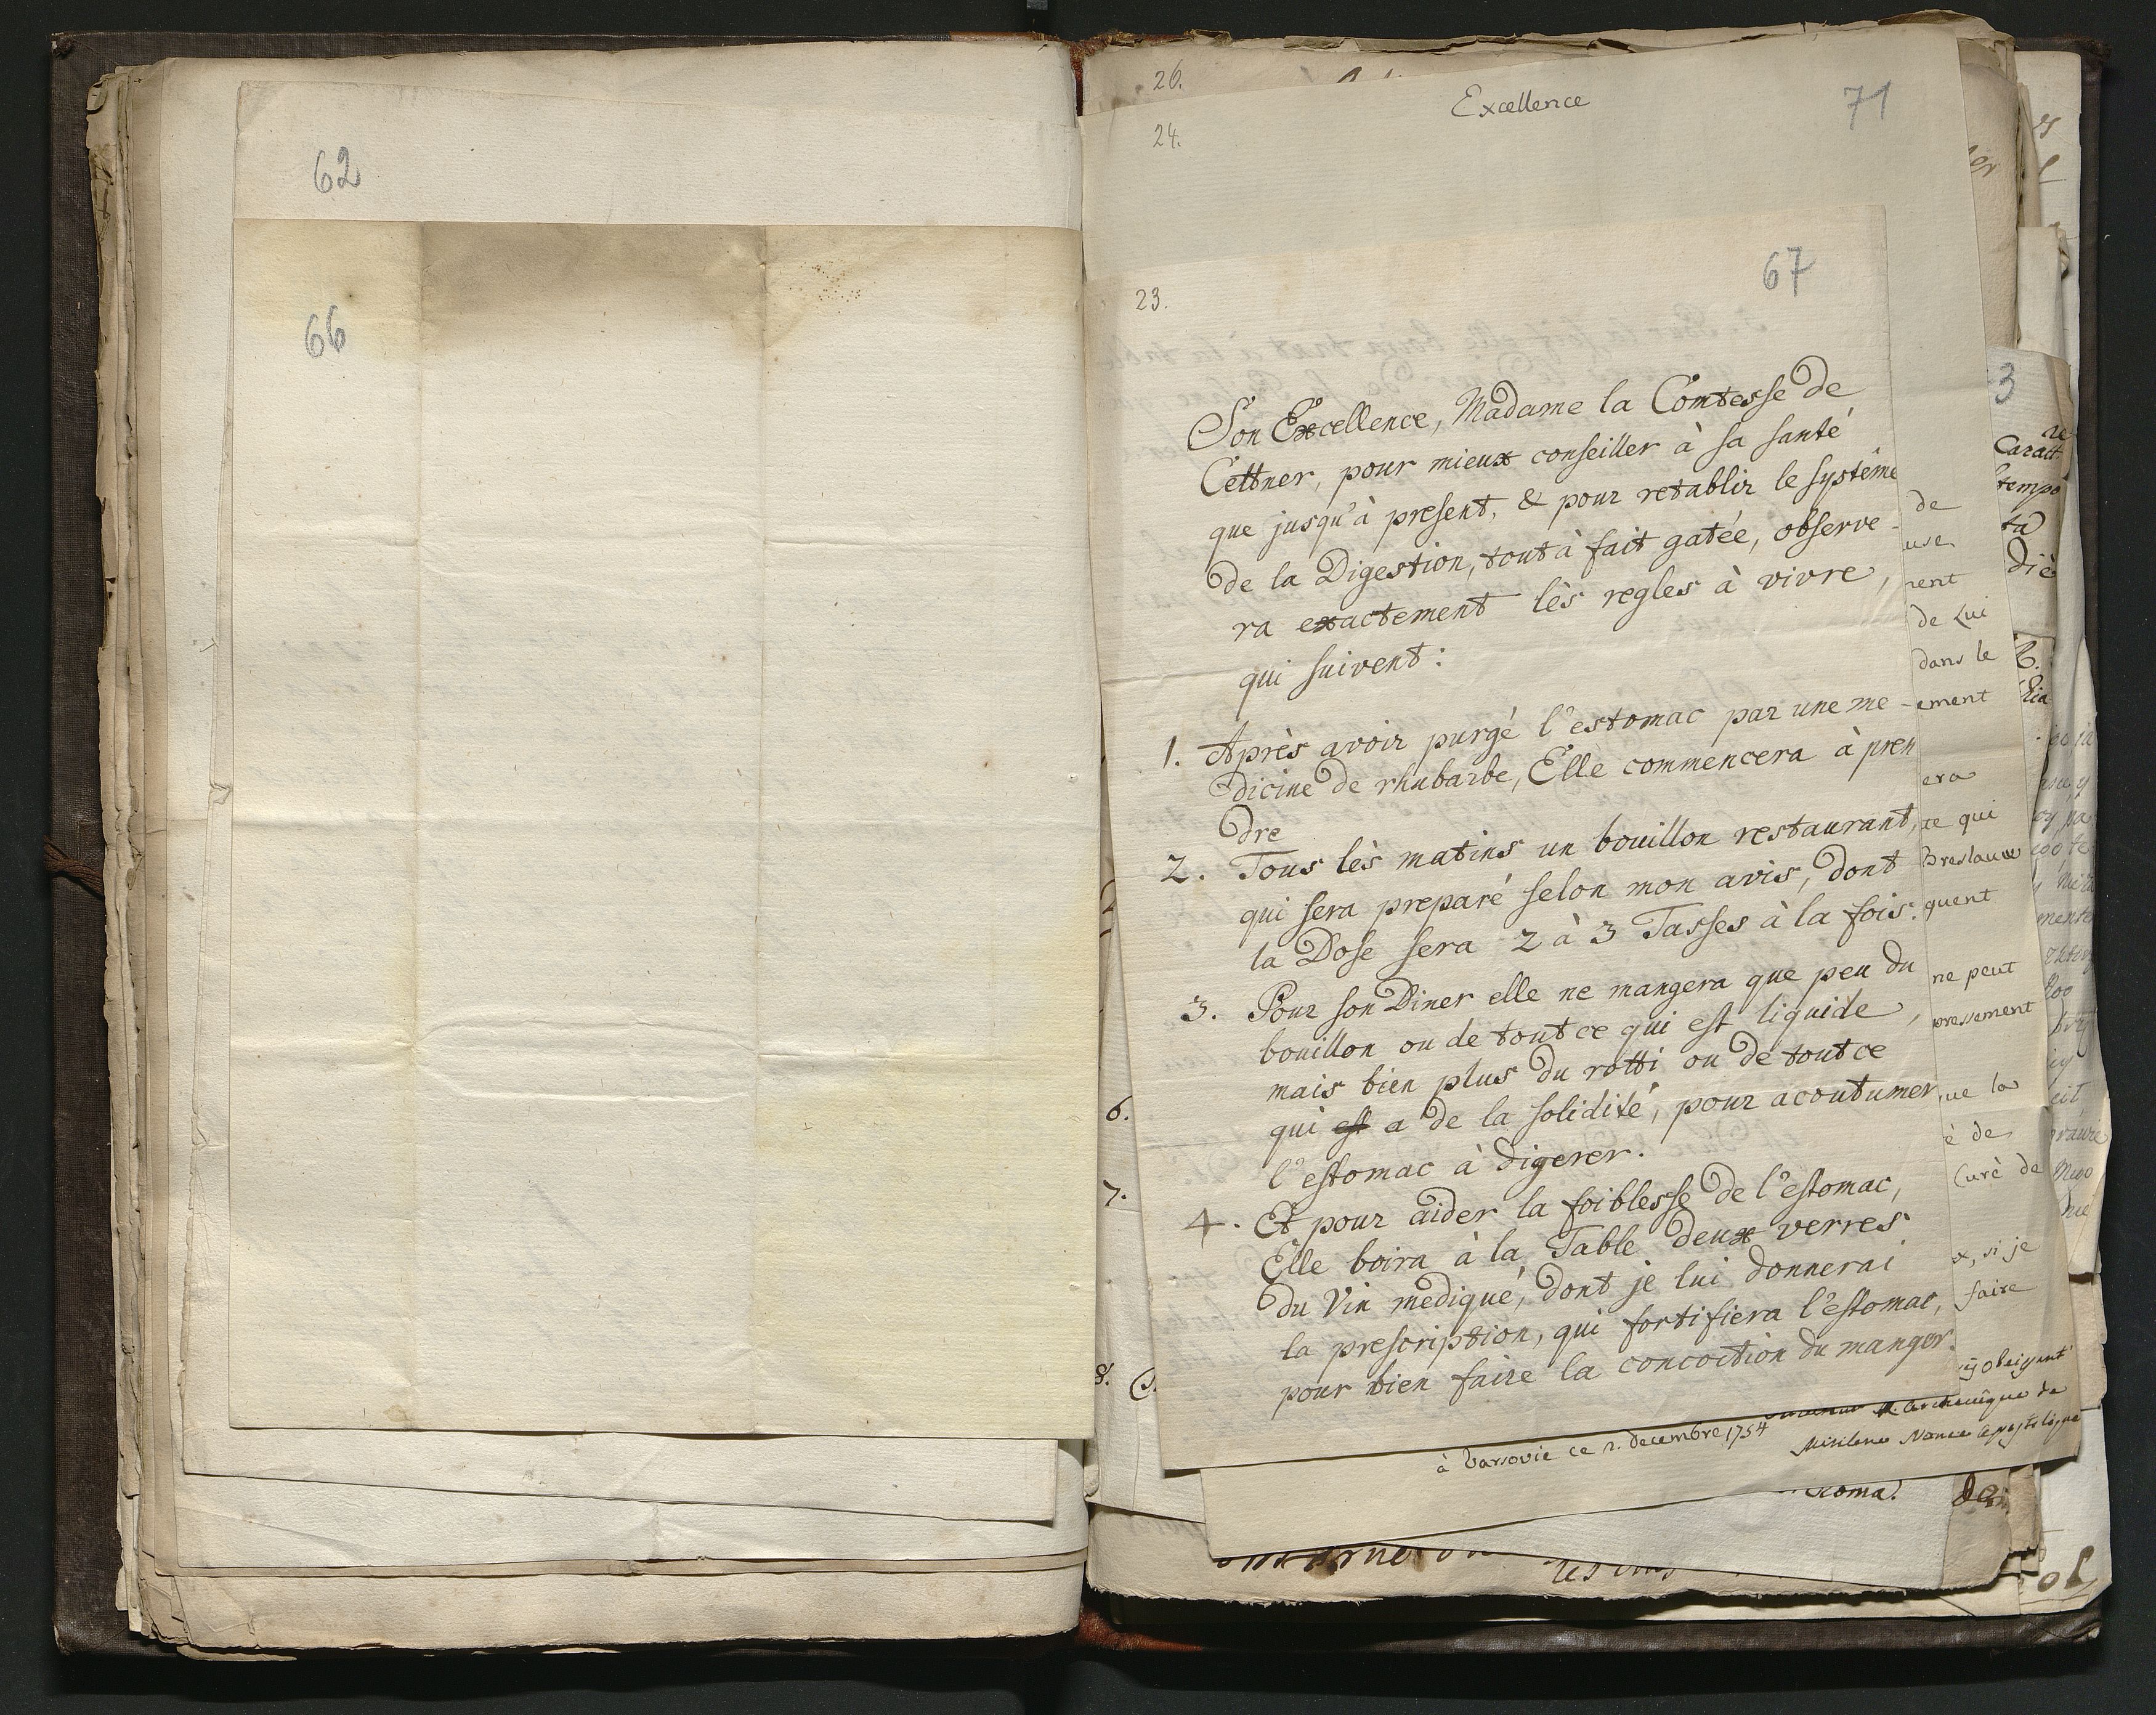 62
66
26.
Excellence
71
24.
67
23.
Son Excellence, Madame la Comtesse de
Cettner, pour mieux conseiller à sa santé
que jusqu'à present, & pour retablir le systême
de la Digestion, tout à fait gatée, observe-
ra exactement lès regles à vivre,
qui suivent:
1. Après avoir purgé l'estomac par une me-
dicine de rhubarbe, Elle commencera à pren
dre
2. Tous lès matins un bouillon restaurant,
qui sera preparé selon mon avis, dont
la Dose sera 2 à 3 Tasses à la fois.
3. Pour son Diner elle ne mangera que peu du
bouillon ou de tout ce qui est liquide,
mais bien plus du rotti ou de tout ce
qui est a de la solidité, pour acoutumer
l'estomac à digerer.
4. Et pour aider la foiblesse de l'estomac,
Elle boira à la Table deux verres
du Vin mediqué, dont je lui donnerai
la prescription, qui fortifiera l'estomac,
pour bien faire la concoction du manger.
de
use
nent
de Lui
dans le
ement
era
ce qui
Breslauw
quent
ne peut
pressement
ue la
è de
Curè de
x, si je
faire
à Varsovie ce 2. decembre 1754
M. Archevêque de
Nonce Apostolique
Roma.
3
Caratt.
tempo
ta
die
6.
7.
8.